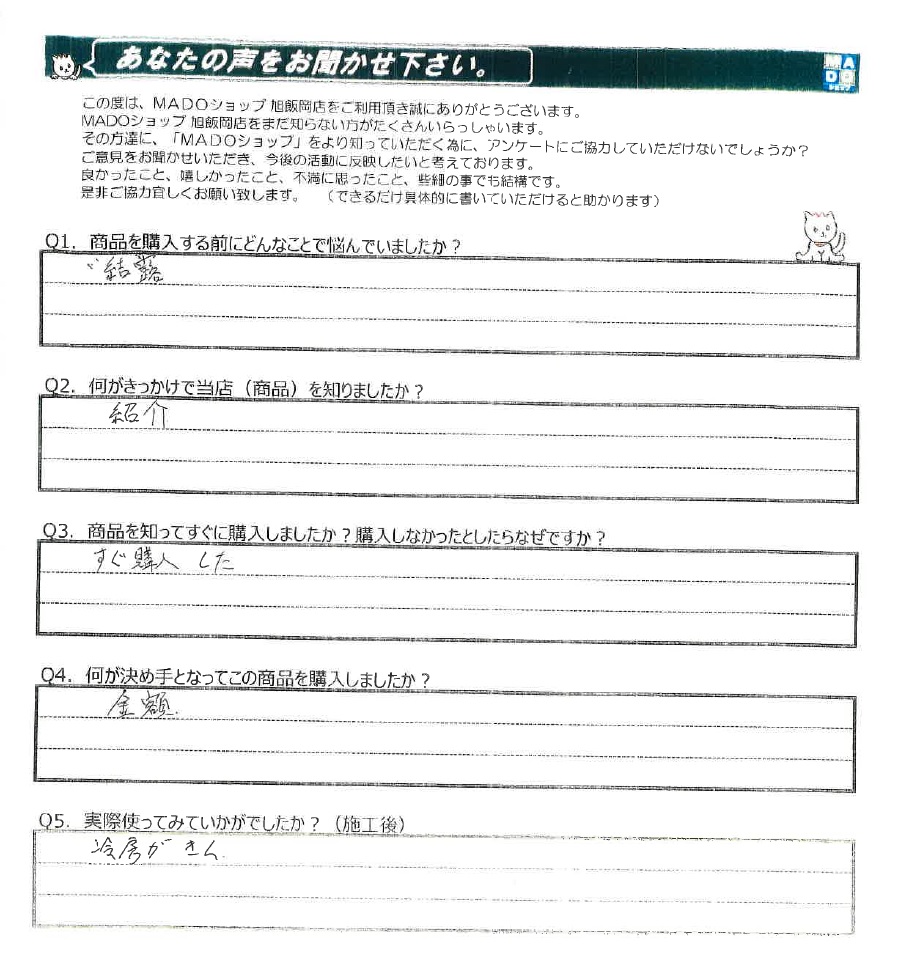 あなたの声をお聞かせ下さい。
MADO
この度は、MADOショップ 旭飯岡店をご利用頂き誠にありがとうございます。
MADOショップ 旭飯岡店をまだ知らない方がたくさんいらっしゃいます。
その方達に、「MADOショップ」をより知っていただく為に、アンケートにご協力していただけないでしょうか？
ご意見をお聞かせいただき、今後の活動に反映したいと考えております。
良かったこと、嬉しかったこと、不満に思ったこと、些細の事でも結構です。
是非ご協力宜しくお願い致します。　（できるだけ具体的に書いていただけると助かります）
Q1．商品を購入する前にどんなことで悩んでいましたか？
結露
Q2．何がきっかけで当店（商品）を知りましたか？
紹介
Q3．商品を知ってすぐに購入しましたか？購入しなかったとしたらなぜですか？
すぐ購入 した
Q4．何が決め手となってこの商品を購入しましたか？
金額.
Q5．実際使ってみていかがでしたか？（施工後）
冷房が きく.